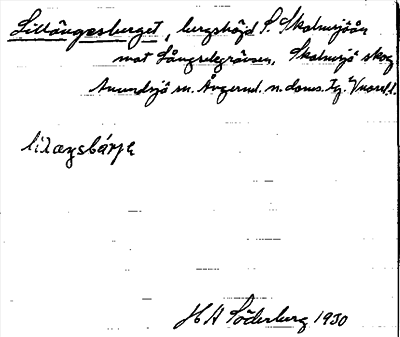 Lillängesberget, bergshöjd S. Skalmsjöån
mot Långselegränsen, Skalmsjö skog
Anundsjö sn. Ångerml. n. doms. Tg. Vnorrl. l.
lilaŋsbárjɛ
H A Söderberg 1930